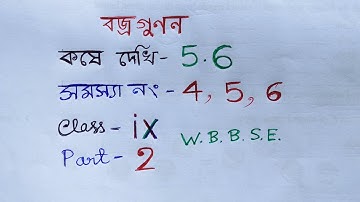 বজ্রগুনন
কষে দেখি - 5.6
সমস্যা নং - 4, 5, 6
Class - ix
W.B.B.S.E.
Part - 2